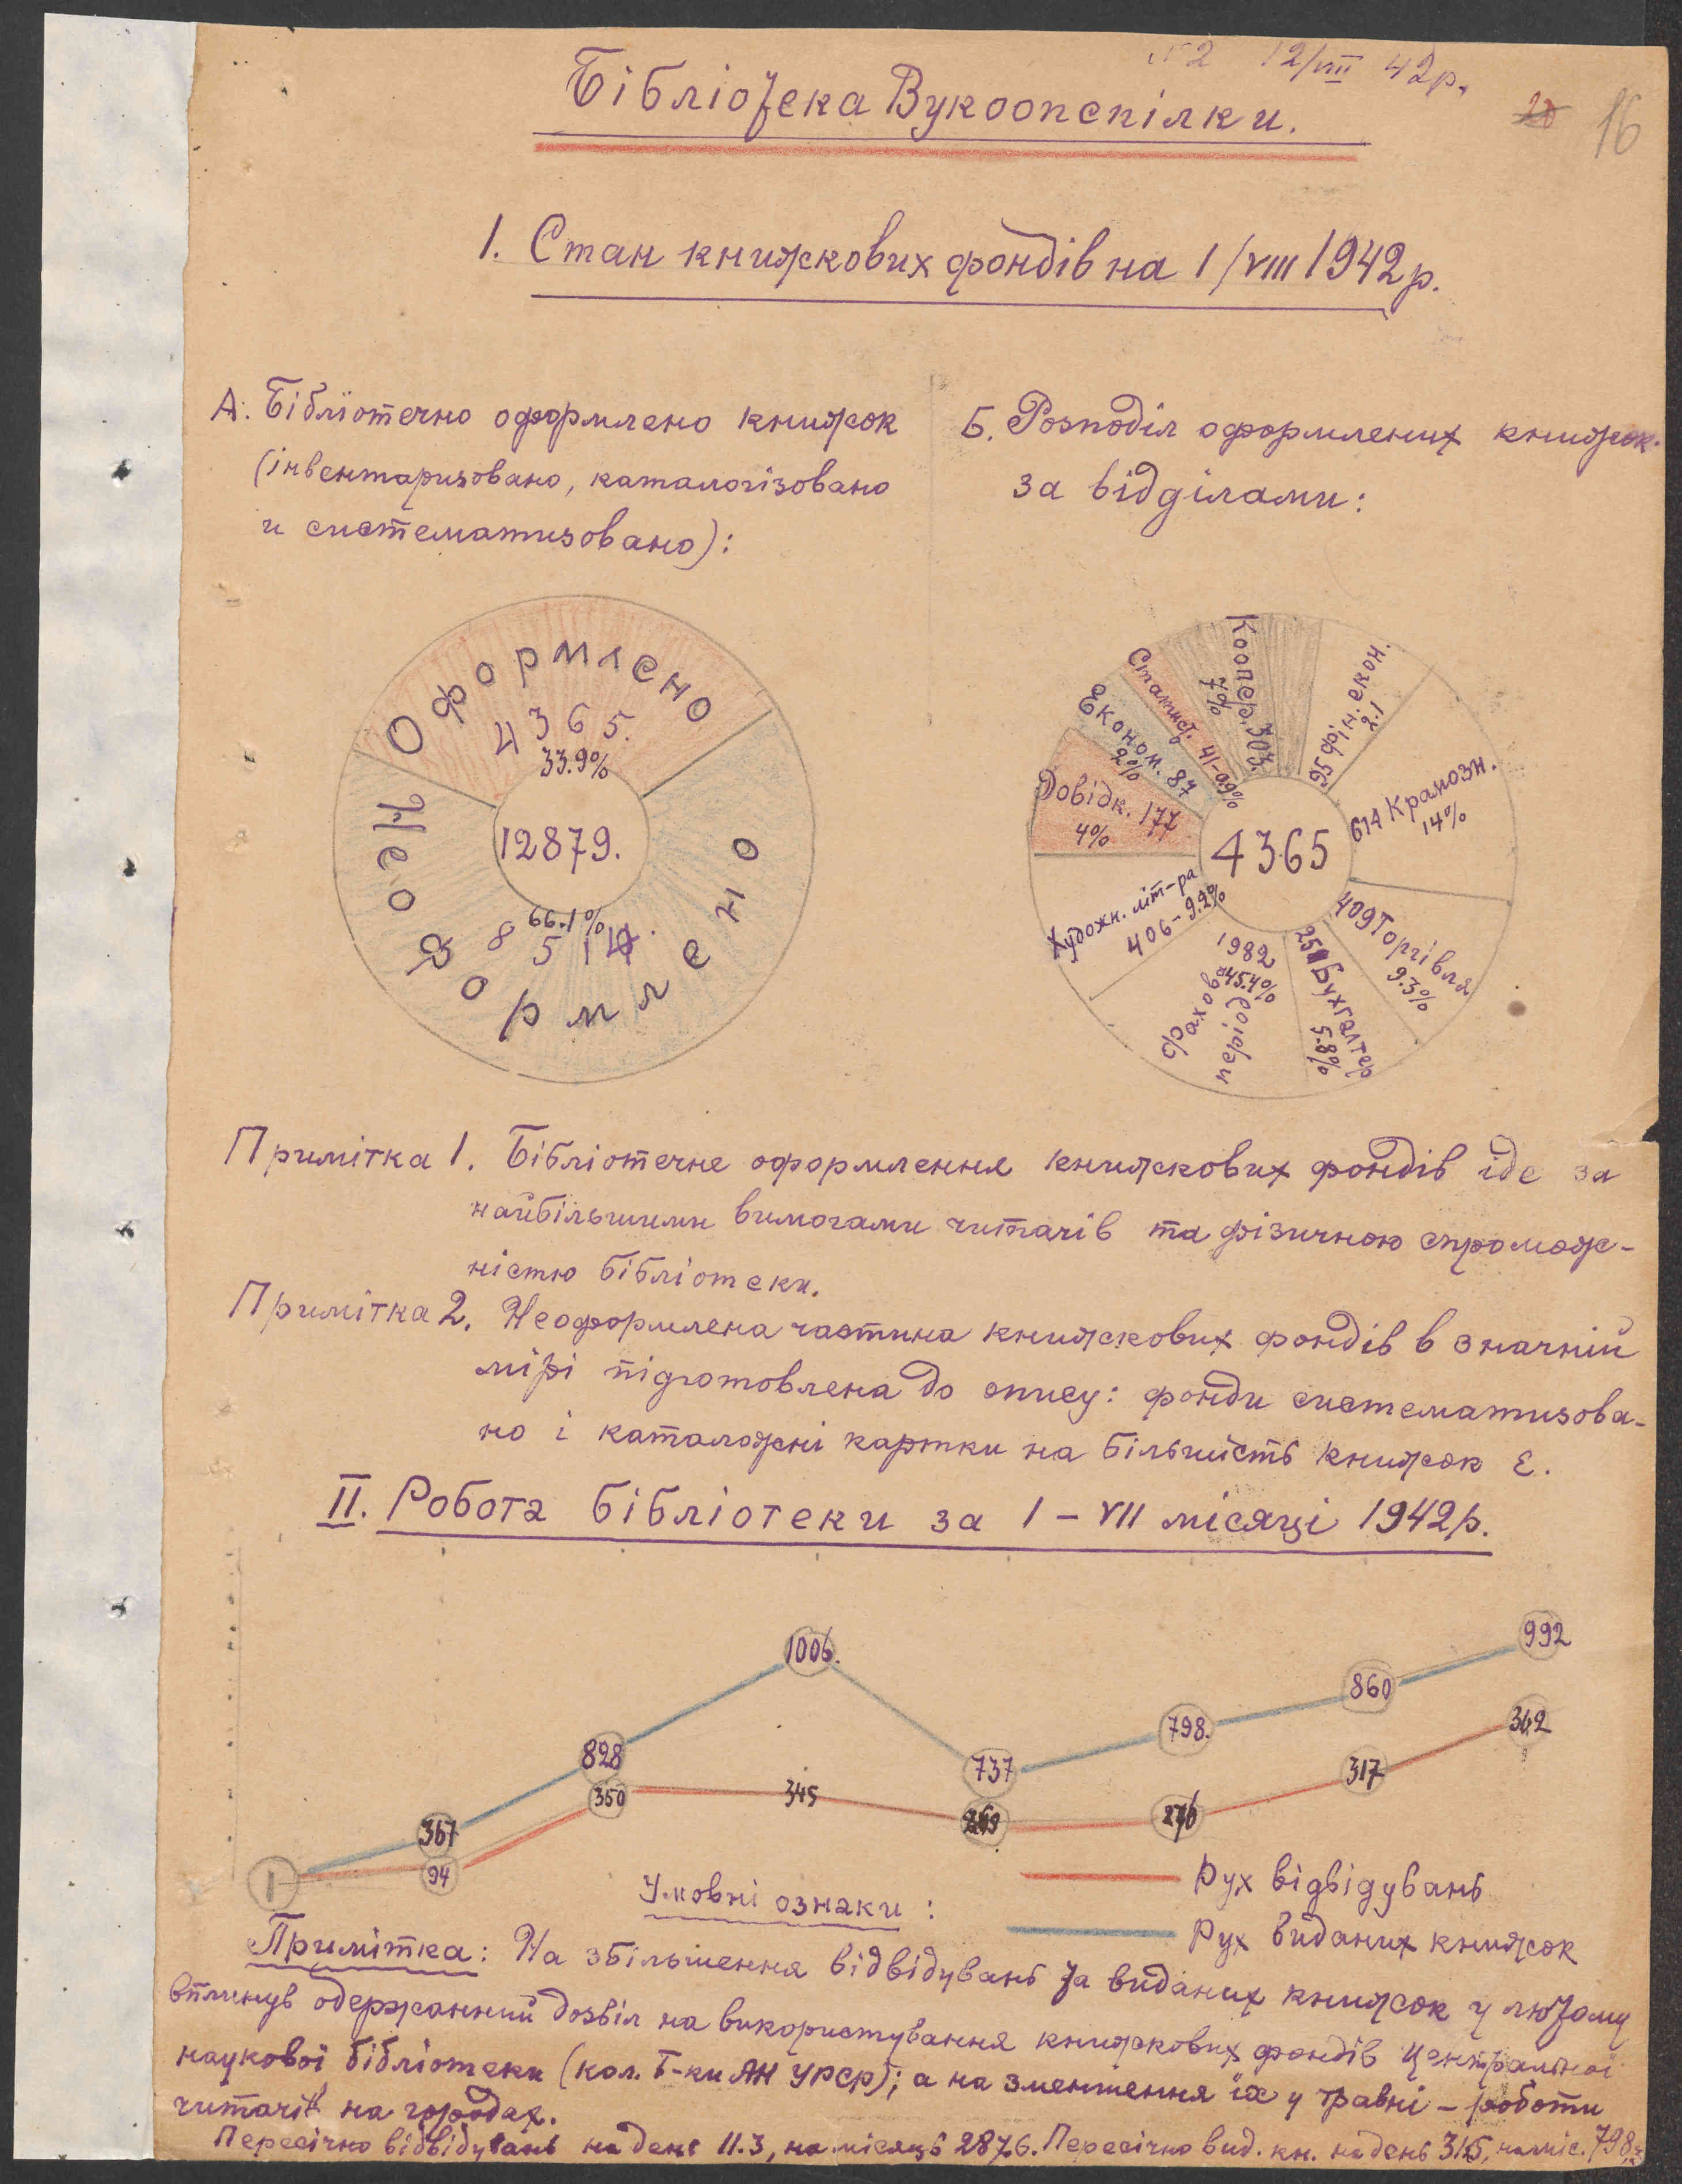 №2 12/VIII 42р.
16
Бібліотека Вукоопспілки.
1. Стан книжкових фондів на 1/VIII 1942р.
А. Бібліотечно оформлено книжок
(інвентаризовано, каталогізовано
и систематизовано):
Б. Розподіл оформлених книжок
за відділами:
Оформлено
4365.
33.9%
12879.
66.1%
8514.
Неоформлено
Коопер. 303.
7%
95 фін. екон.
2.1
614 Крамозн.
14%
409 Торгівля
9.3%
251 Бухгалтер
5.8%
1982
45.4%
фахова
період
Художн. літ-ра
406-9.2%
Довідк. 177
4%
Економ. 87
2%
Статист. 41-0.9%
4365
Примітка 1. Бібліотечне оформлення книжкових фондів іде за
найбільшими вимогами читачів та фізичною спромож-
ністю бібліотеки.
Примітка 2. Неоформлена частина книжкових фондів в значній
мірі підготовлена до опису: фонди систематизова-
но і каталожні картки на більшість книжок є.
II. Робота бібліотеки за I – VII місяці 1942р.
1006.
992
860
798.
737
828
367
342
317
276
269
345
350
94
1
Умовні ознаки:
Рух відвідувань
Рух виданих книжок
Примітка: На збільшення відвідувань та виданих книжок у лютому
вплинув одержанний дозвіл на використування книжкових фондів Центральної
наукової бібліотеки (кол. Б-ки АН УРСР); а на зменшення їх у травні – роботи
читачів на городах.
Пересічно відвідувань на день 11.3, на місяць 287.6. Пересічно вид. кн. на день 31.5, на міс. 798